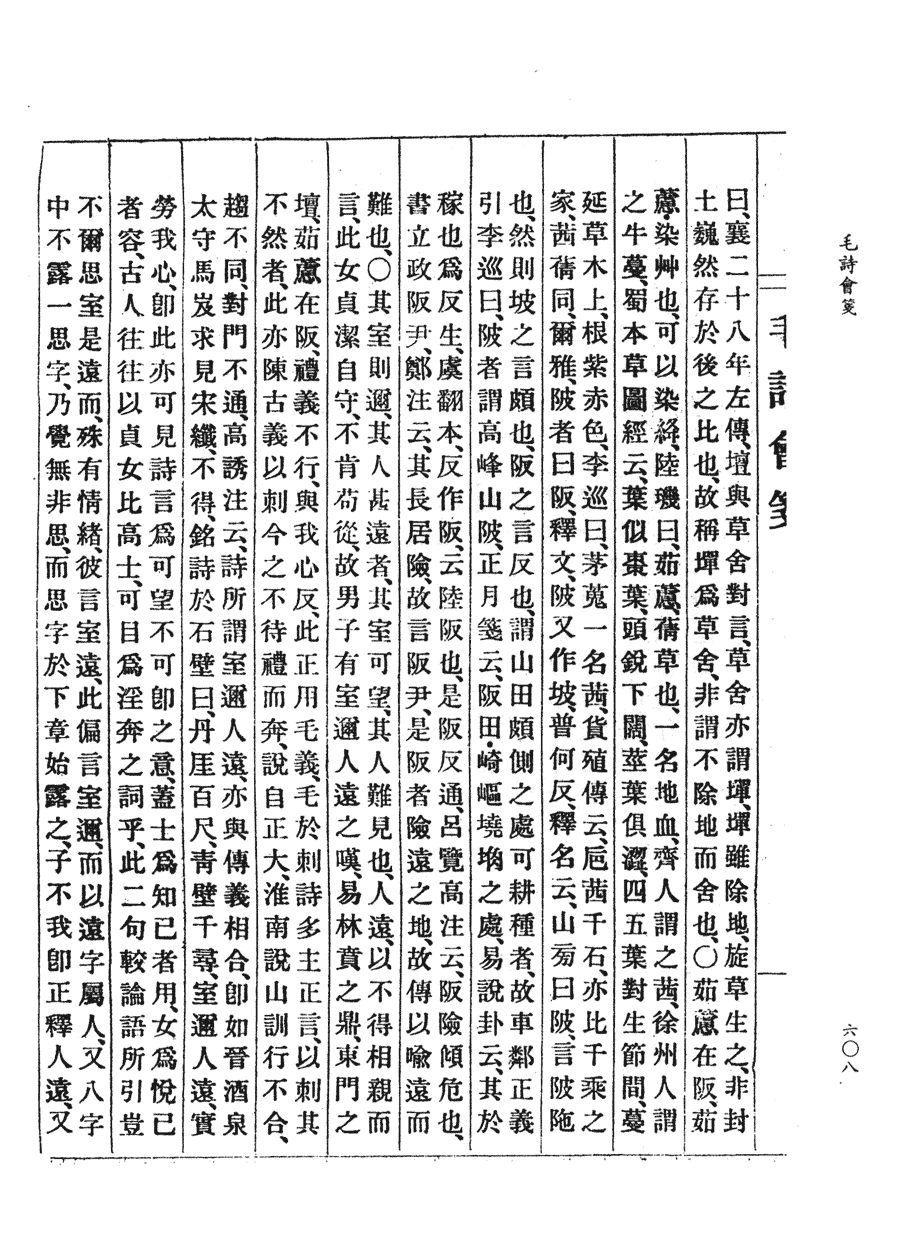 毛詩會箋
六〇八
毛詩會箋
曰、襄二十八年左傳、壇與草舍對言、草舍亦謂墠、墠雖除地、旋草生之、非封
土巍然存於後之比也、故稱墠爲草舍、非謂不除地而舍也、〇茹藘在阪、茹
藘、染艸也、可以染絳、陸璣曰、茹藘、蒨草也、一名地血、齊人謂之茜、徐州人謂
之牛蔓、蜀本草圖經云、葉似棗葉、頭銳下闊、莖葉俱澀、四五葉對生節間、蔓
延草木上、根紫赤色、李巡曰、茅蒐一名茜、貨殖傳云、巵茜千石、亦比千乘之
家、茜蒨同、爾雅、陂者曰阪、釋文、陂又作坡、普何反、釋名云、山旁曰陂、言陂陁
也、然則坡之言頗也、阪之言反也、謂山田頗側之處可耕種者、故車鄰正義
引李巡曰、陂者謂高峰山陂、正月箋云、阪田、崎嶇墝埆之處、易說卦云、其於
稼也爲反生、虞翻本、反作阪、云陸阪也、是阪反通、呂覽高注云、阪險傾危也、
書立政阪尹、鄭注云、其長居險、故言阪尹、是阪者險遠之地、故傳以喻遠而
難也、〇其室則邇、其人甚遠者、其室可望、其人難見也、人遠、以不得相親而
言、此女貞潔自守、不肯苟從、故男子有室邇人遠之嘆、易林賁之鼎、東門之
壇、茹藘在阪、禮義不行、與我心反、此正用毛義、毛於刺詩多主正言、以刺其
不然者、此亦陳古義以刺今之不待禮而奔、說自正大、淮南說山訓行不合、
趨不同、對門不通、高誘注云、詩所謂室邇人遠、亦與傳義相合、卽如晉酒泉
太守馬岌求見宋纖、不得、銘詩於石壁曰、丹厓百尺、靑壁千尋、室邇人遠、實
勞我心、卽此亦可見詩言爲可望不可卽之意、蓋士爲知已者用、女爲悅已
者容、古人往往以貞女比高士、可目爲淫奔之詞乎、此二句較論語所引豈
不爾思室是遠而、殊有情緒、彼言室遠、此偏言室邇、而以遠字屬人、又八字
中不露一思字、乃覺無非思、而思字於下章始露之、子不我卽正釋人遠、又